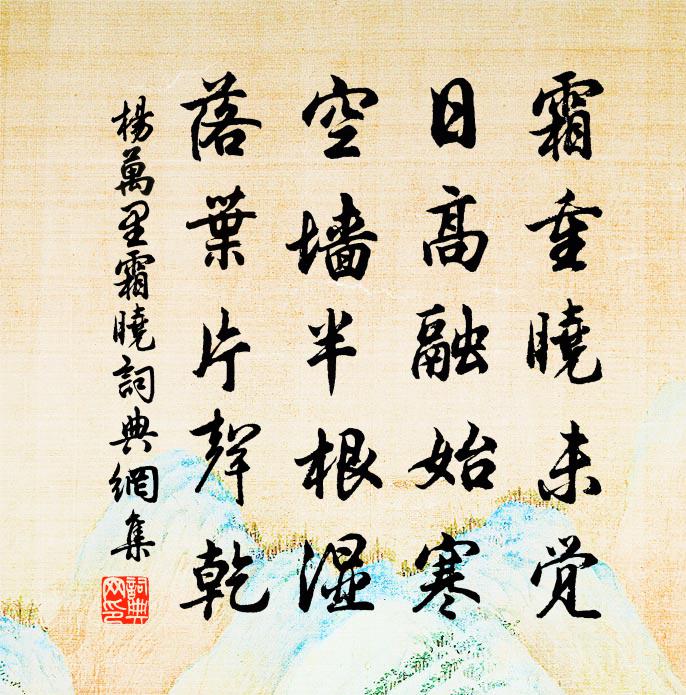 霜重曉未觉
日高融始寒
空墙半根湿
落葉片聲乾
楊萬里霜曉詞典網集
詞典網印